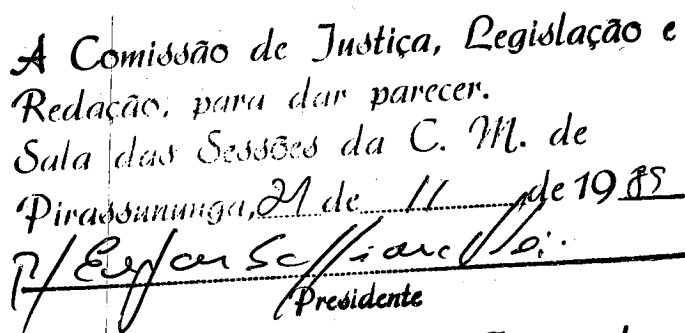 A Comissão de Justiça, Legislação e
Redação, para dar parecer.
Sala das Sessões da C. M. de
Pirassununga, 21 de 11 de 1985
P/
Presidente